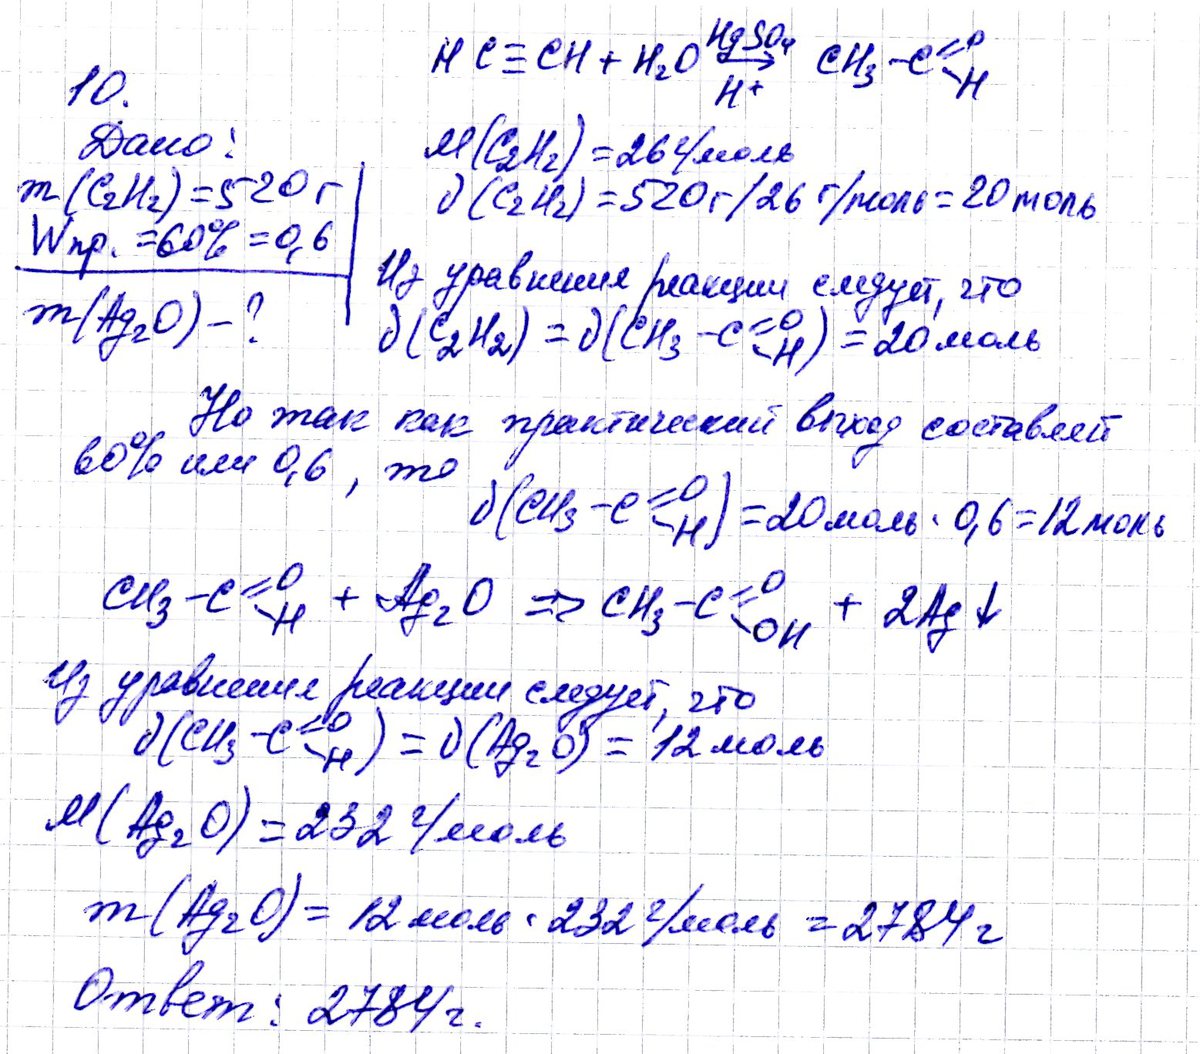 HC≡CH + H₂O →(HgSO₄, H⁺) CH₃-C(=O)-H
10.
Дано:
m(C₂H₂)=520 г
Wпр. =60%=0,6
m(Ag₂O) - ?
M(C₂H₂)=26 г/моль
∂(C₂H₂)=520 г/26 г/моль=20 моль
Из уравнения реакции следует, что
∂(C₂H₂) = ∂(CH₃-C(=O)-H) = 20 моль
Но так как практический выход составляет
60% или 0,6, то
∂(CH₃-C(=O)-H)=20 моль · 0,6=12 моль
CH₃-C(=O)-H + Ag₂O => CH₃-C(=O)-OH + 2Ag↓
Из уравнения реакции следует, что
∂(CH₃-C(=O)-H) = ∂(Ag₂O) = 12 моль
M(Ag₂O)=232 г/моль
m(Ag₂O)= 12 моль · 232 г/моль = 2784 г
Ответ: 2784 г.